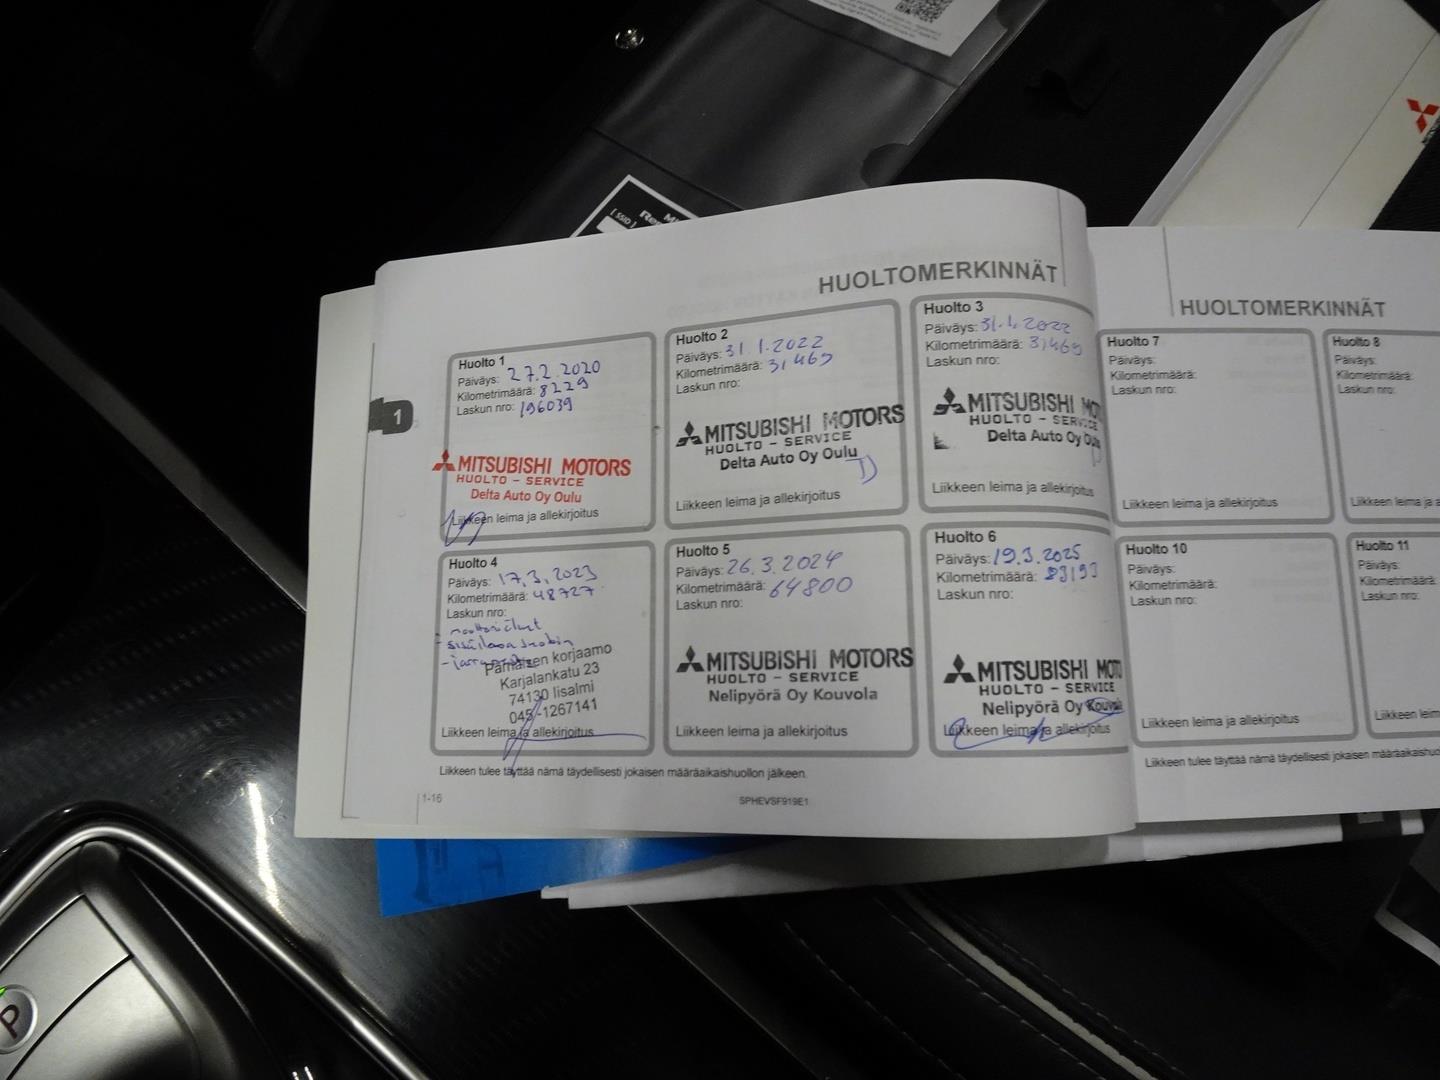 [SSID]
HUOLTOMERKINNÄT
Huolto 1
Päiväys: 27.2.2020
Kilometrimäärä: 8229
Laskun nro: 196039
MITSUBISHI MOTORS
HUOLTO - SERVICE
Delta Auto Oy Oulu
Liikkeen leima ja allekirjoitus
Huolto 2
Päiväys: 31.1.2022
Kilometrimäärä: 31469
Laskun nro:
MITSUBISHI MOTORS
HUOLTO - SERVICE
Delta Auto Oy Oulu
Liikkeen leima ja allekirjoitus
Huolto 3
Päiväys: 31.1.2022
Kilometrimäärä: 31469
Laskun nro:
MITSUBISHI MO
HUOLTO - SERVICE
Delta Auto Oy Oulu
Liikkeen leima ja allekirjoitus
1
Huolto 4
Päiväys: 17.3.2023
Kilometrimäärä: 48727
Laskun nro:
korjaamo
Karjalankatu 23
74130 Iisalmi
045-1267141
Liikkeen leima ja allekirjoitus
Huolto 5
Päiväys: 26.3.2024
Kilometrimäärä: 64800
Laskun nro:
MITSUBISHI MOTORS
HUOLTO - SERVICE
Nelipyörä Oy Kouvola
Liikkeen leima ja allekirjoitus
Huolto 6
Päiväys: 19.3.2025
Kilometrimäärä: 83193
Laskun nro:
MITSUBISHI MOT
HUOLTO - SERVICE
Nelipyörä Oy Kouvola
Liikkeen leima ja allekirjoitus
Liikkeen tulee täyttää nämä täydellisesti jokaisen määräaikaishuollon jälkeen.
1-16
5PHEVSF919E1
HUOLTOMERKINNÄT
Huolto 7
Päiväys:
Kilometrimäärä:
Laskun nro:
Liikkeen leima ja allekirjoitus
Huolto 8
Päiväys:
Kilometrimäärä:
Laskun nro:
Liikkeen leima ja a
Huolto 10
Päiväys:
Kilometrimäärä:
Laskun nro:
Liikkeen leima ja allekirjoitus
Huolto 11
Päiväys:
Kilometrimäärä:
Laskun nro:
Liikkeen leim
Liikkeen tulee täyttää nämä täydellisesti jokaisen määräaikaishuo
P